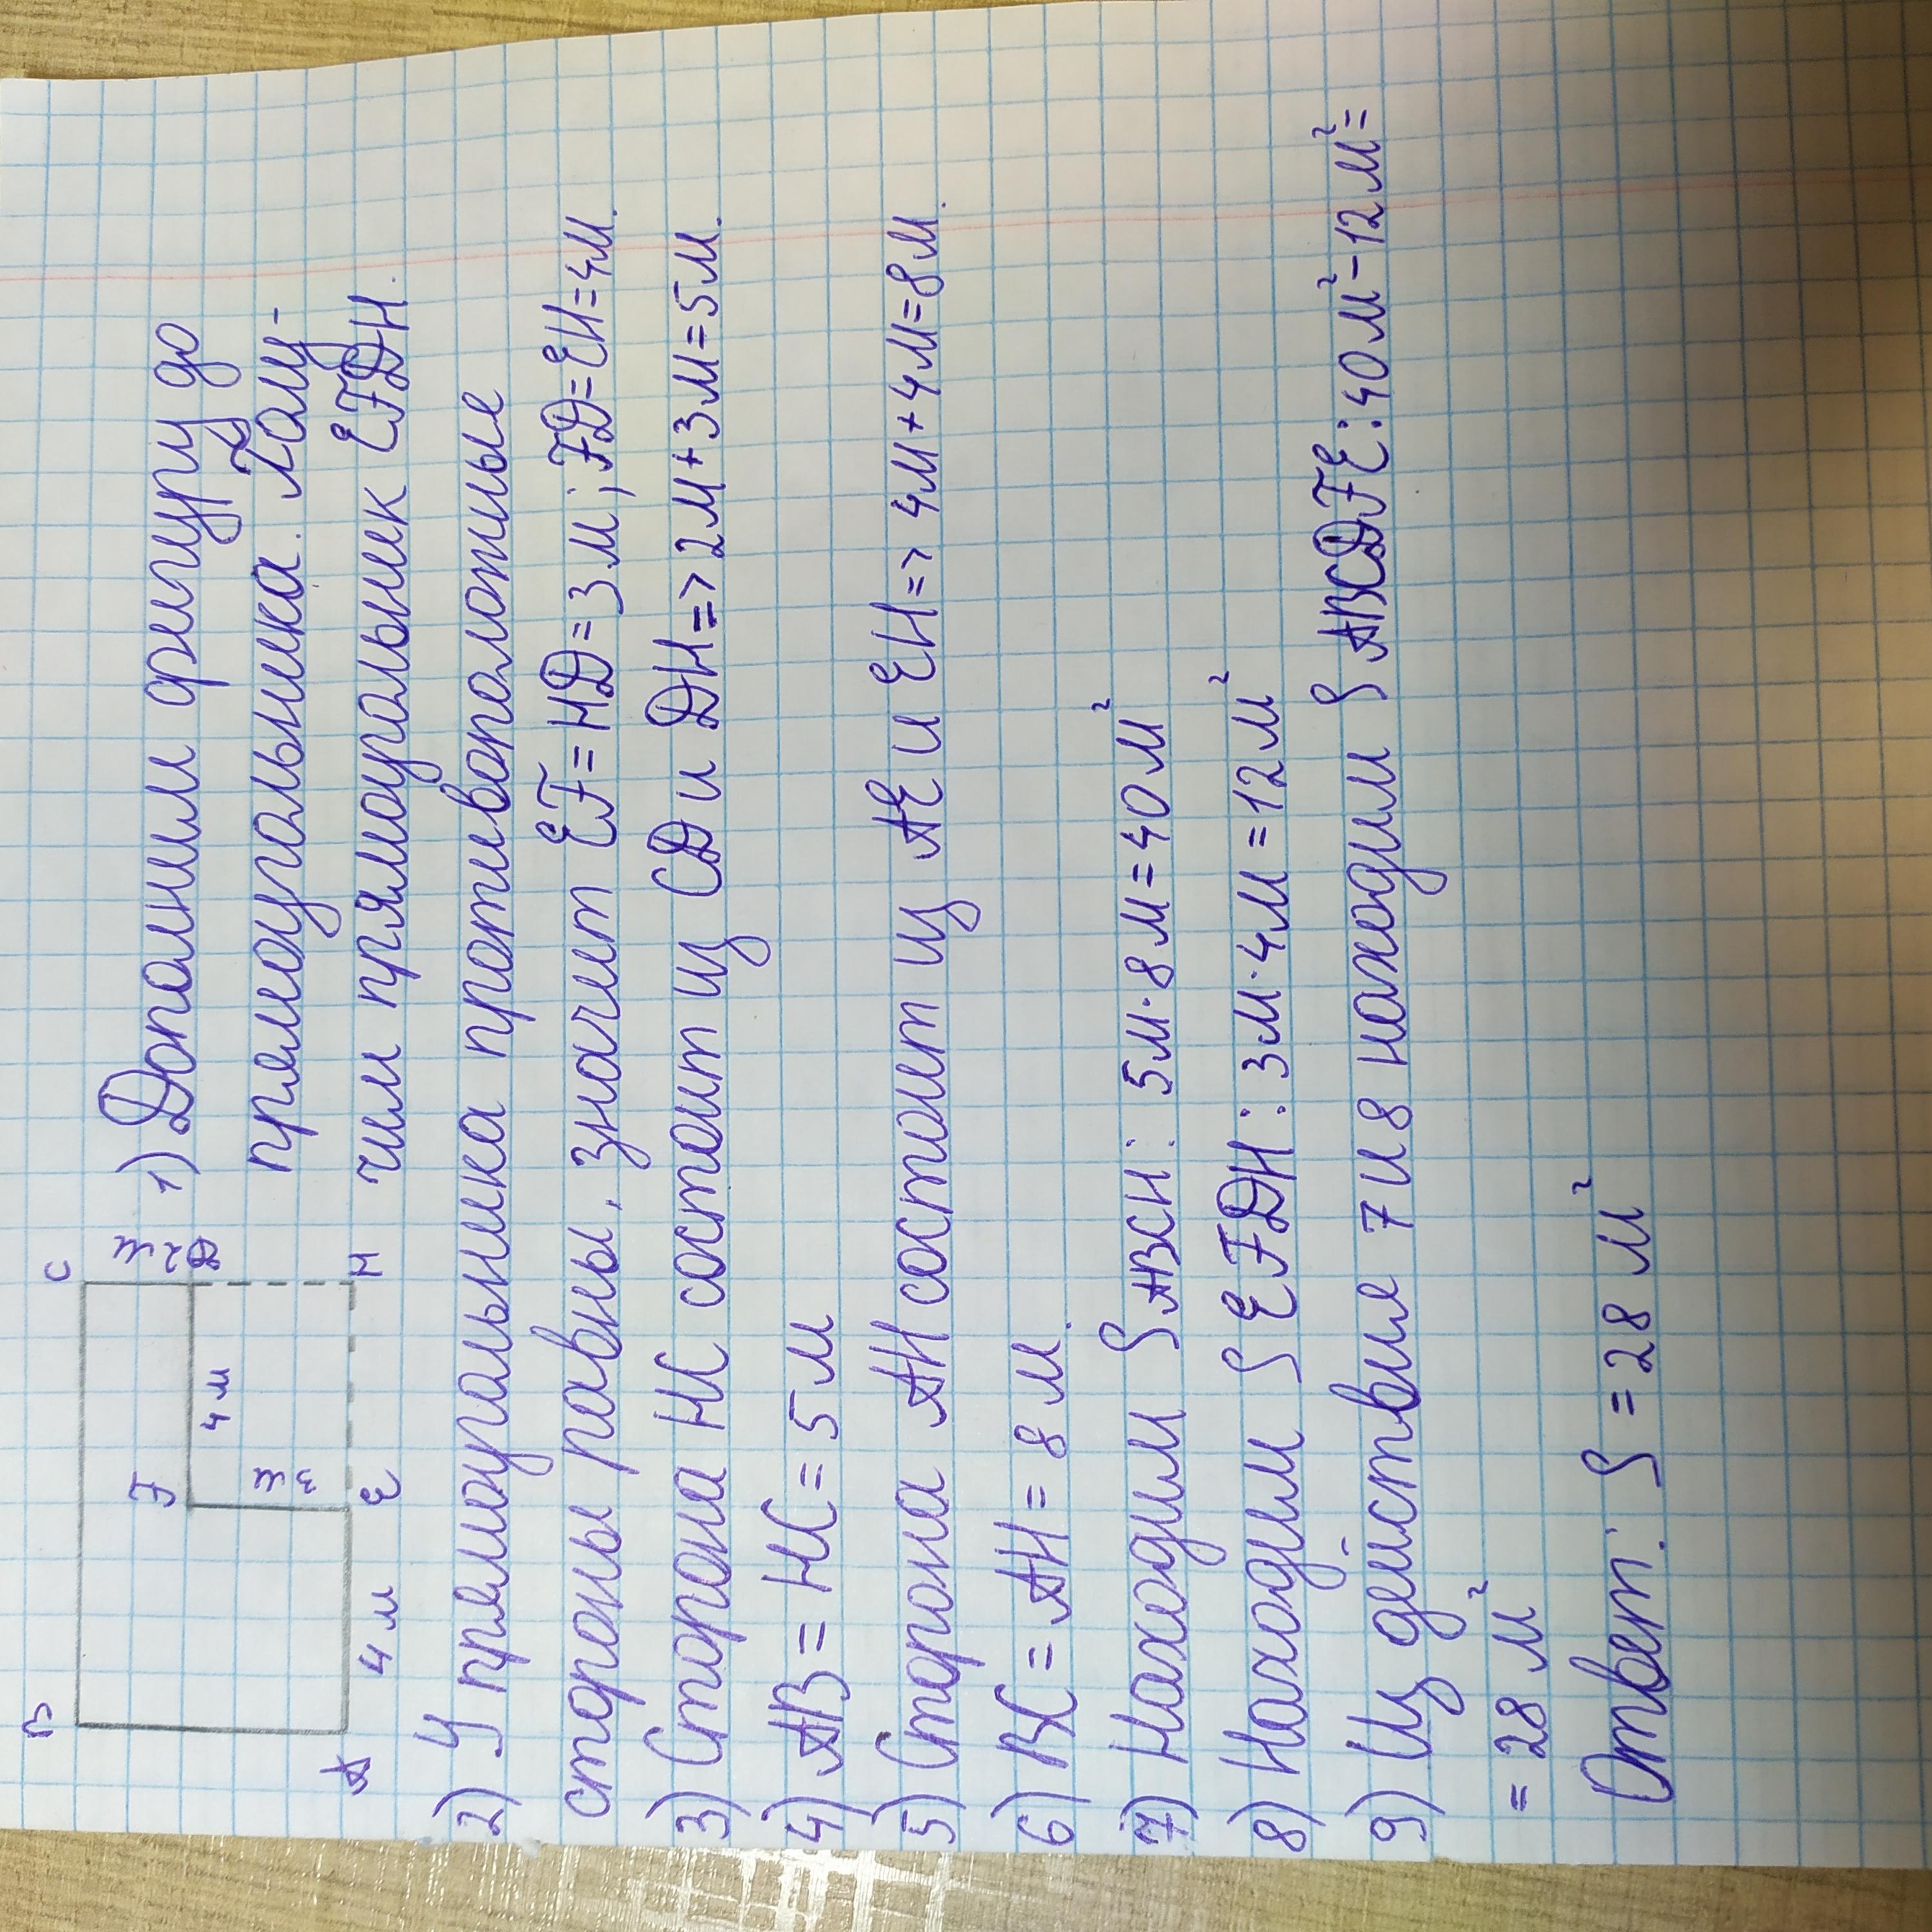 B
C
2 м
1) Дополним фигуру до
F
Д
прямоугольника. Полу-
3 м
4 м
A
4 м
E
H
чим прямоугольник EFДH.
2) У прямоугольника противоположные
стороны равны, значит EF=HД=3м; FД=EH=4м.
3) Сторона HC состоит из CД и ДH=>2м+3м=5м.
4) AB=HC=5м
5) Сторона AH состоит из AE и EH=>4м+4м=8м.
6) BC=AH=8м.
7) Находим S ABCH: 5м·8м=40м²
8) Находим S EFДH: 3м·4м=12м²
9) Из действие 7 и 8 находим S ABCДFE: 40м²-12м²=
=28м²
Ответ: S=28м²